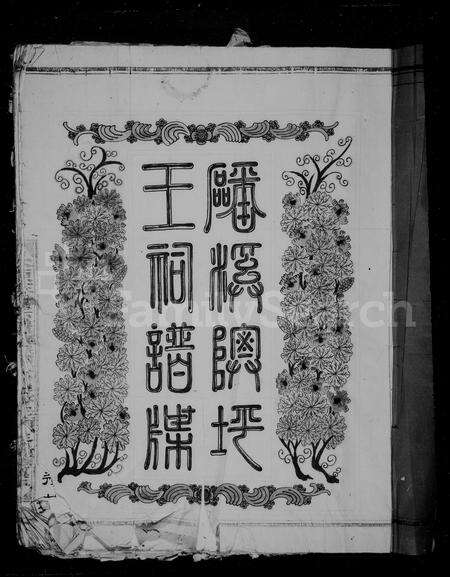 磻溪隩坪
王祠譜牒
FamilySearch